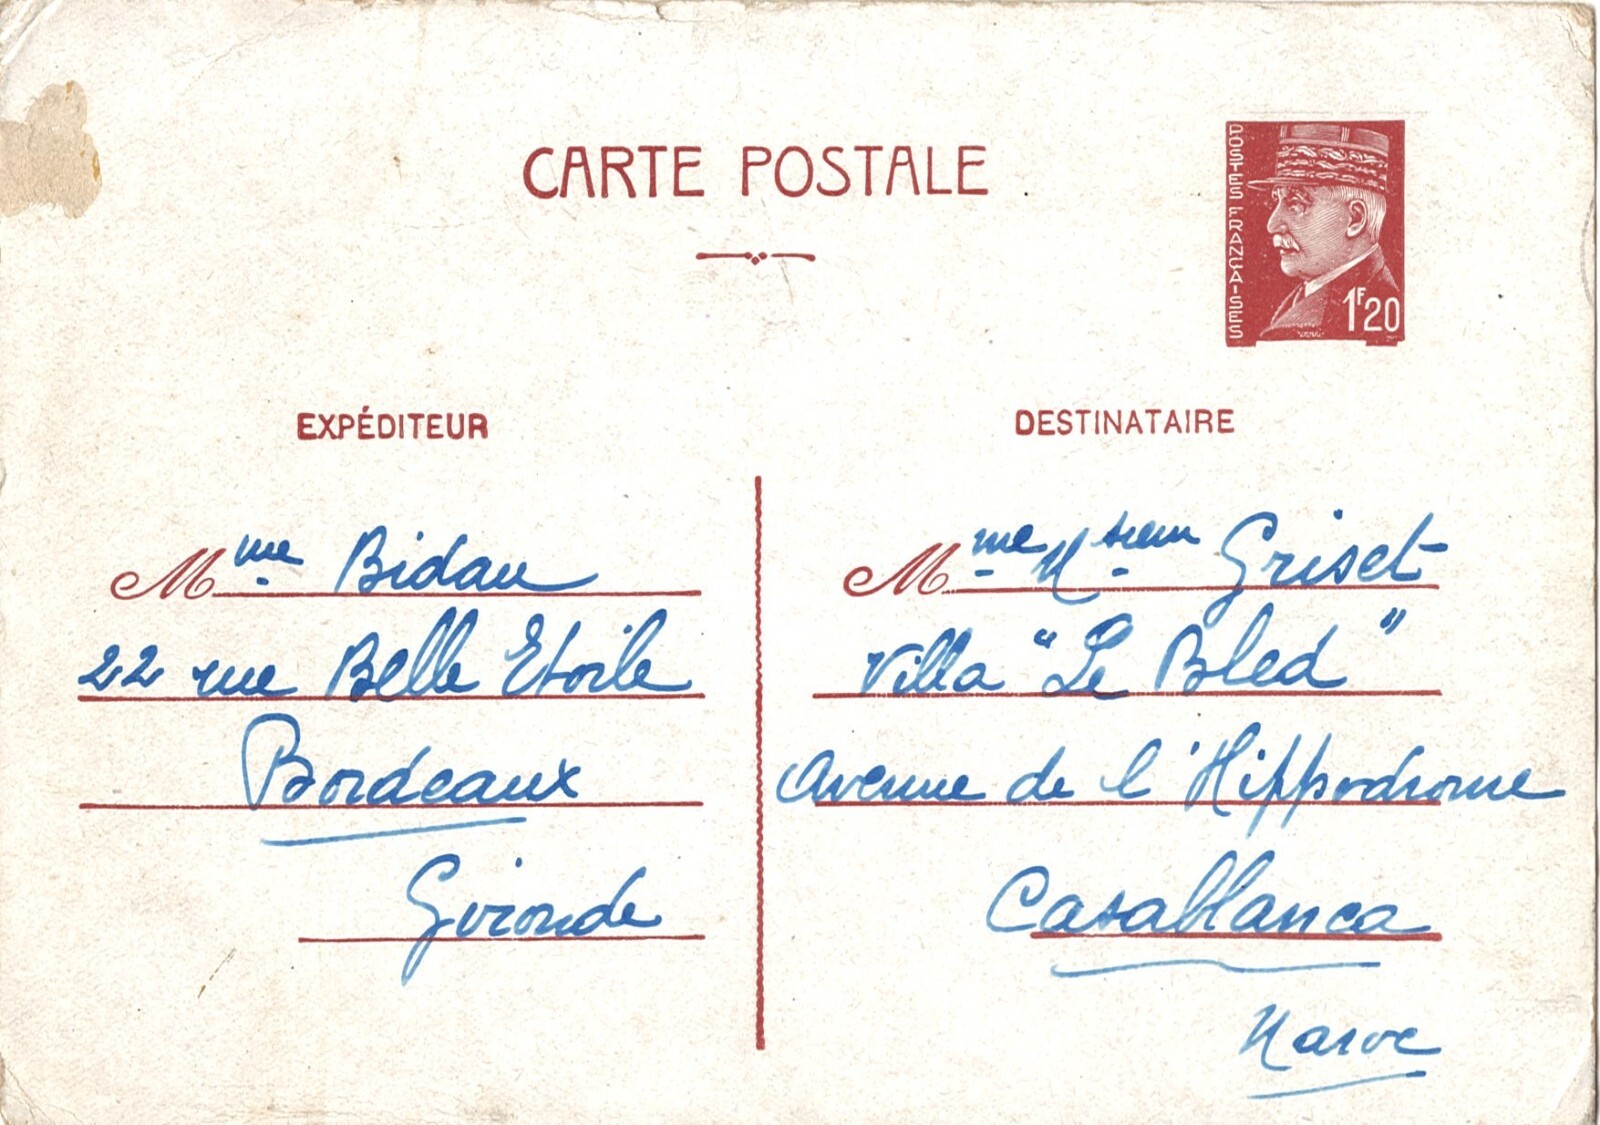 CARTE POSTALE
POSTES FRANÇAISES
1F20
EXPÉDITEUR
Mme Bidau
22 rue Belle Etoile
Bordeaux
Gironde
DESTINATAIRE
Mme Msieur Griset
Villa "Le Bled"
Avenue de l'Hippodrome
Casablanca
Maroc